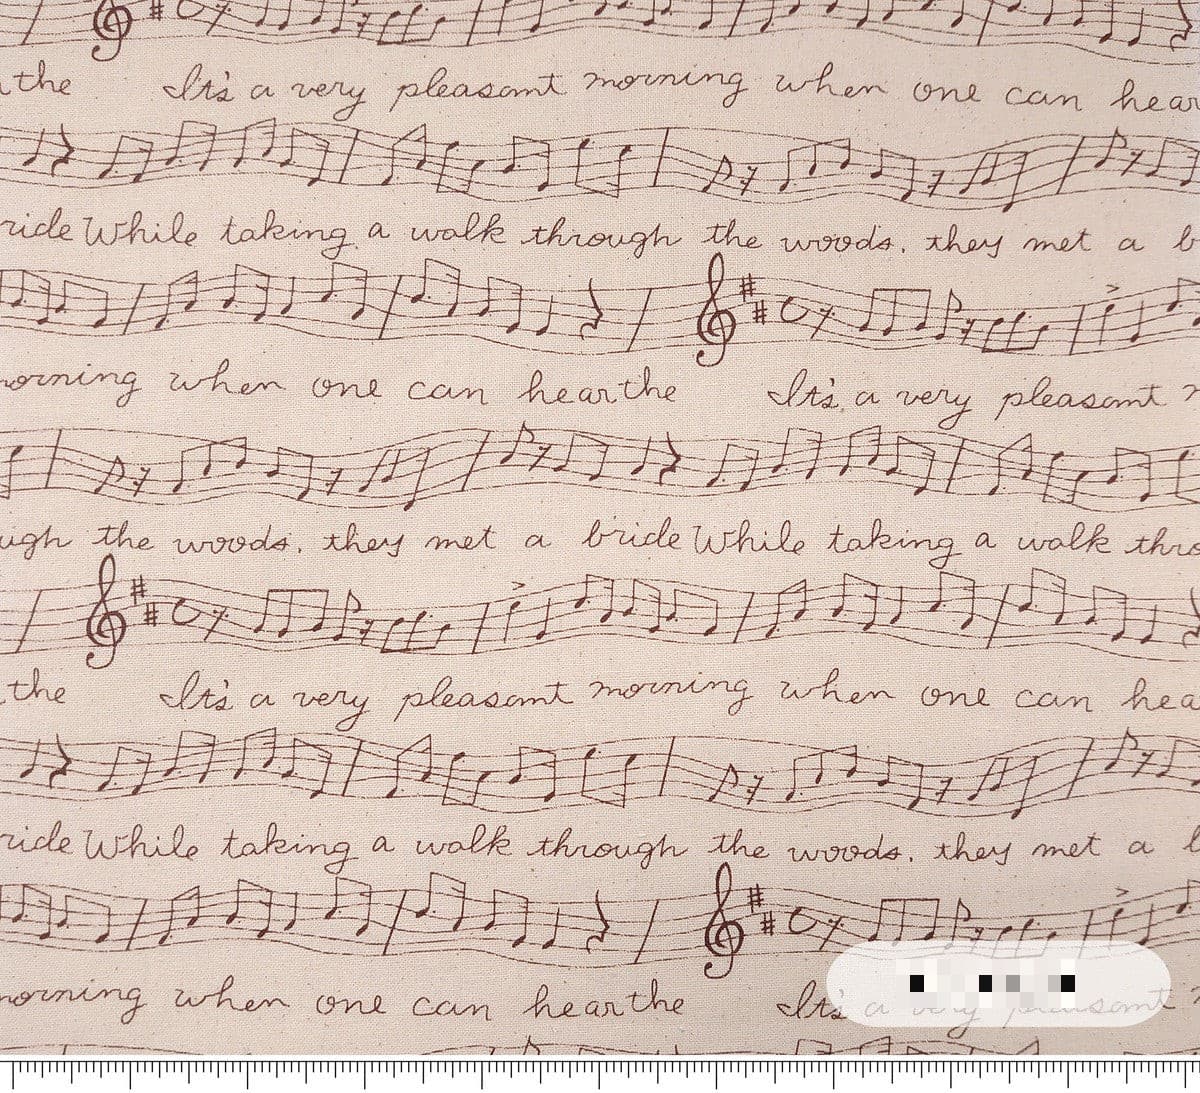 the It's a very pleasant morning when one can hear
ride While taking a walk through the woods. they met a b
morning when one can hear the It's a very pleasant
ugh the woods. they met a bride While taking a walk thro
the It's a very pleasant morning when one can hea
ride While taking a walk through the woods. they met a
morning when one can hear the It's a very pleasant